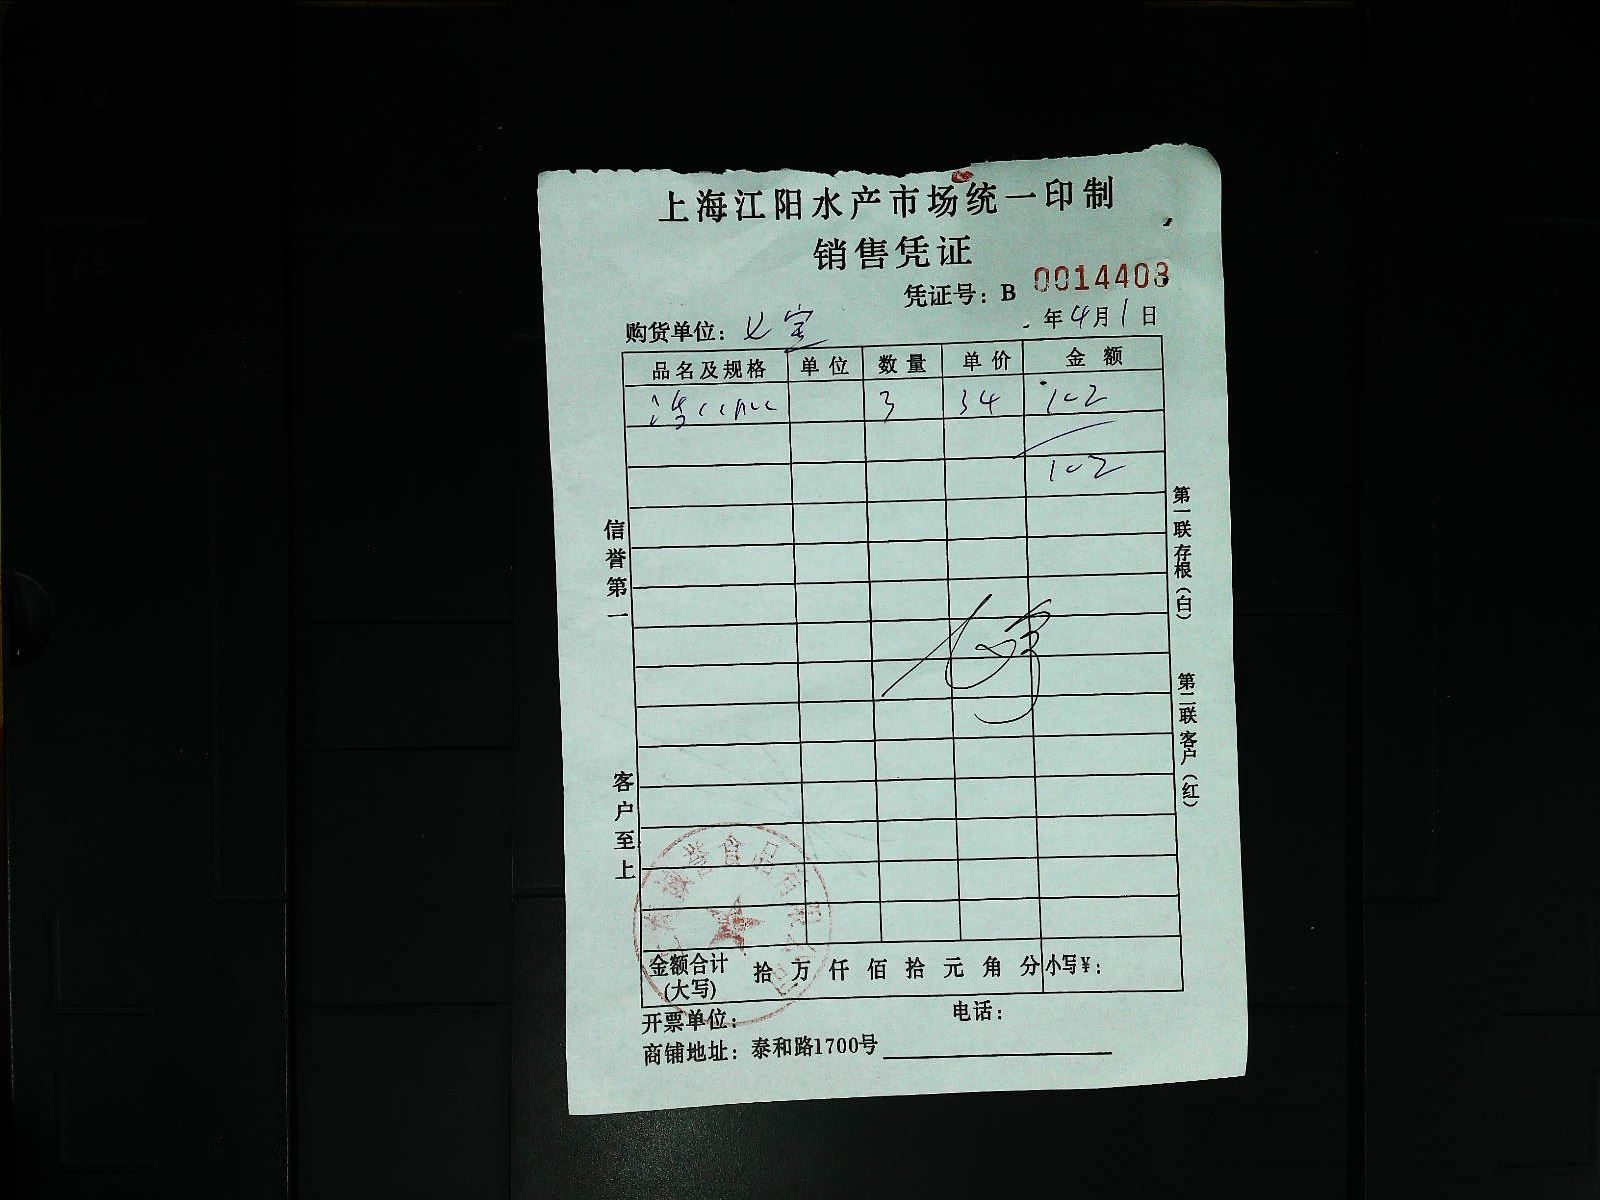 上海江阳水产市场统一印制
销售凭证
凭证号：B 0014408
购货单位：七宝
年4月1日
品名及规格 单位 数量 单价 金额
3 34 102
102
信誉第一
客户至上
第一联存根（白）
第二联客户（红）
金额合计(大写) 拾万仟佰拾元角分 小写￥：
开票单位：
电话：
商铺地址：泰和路1700号